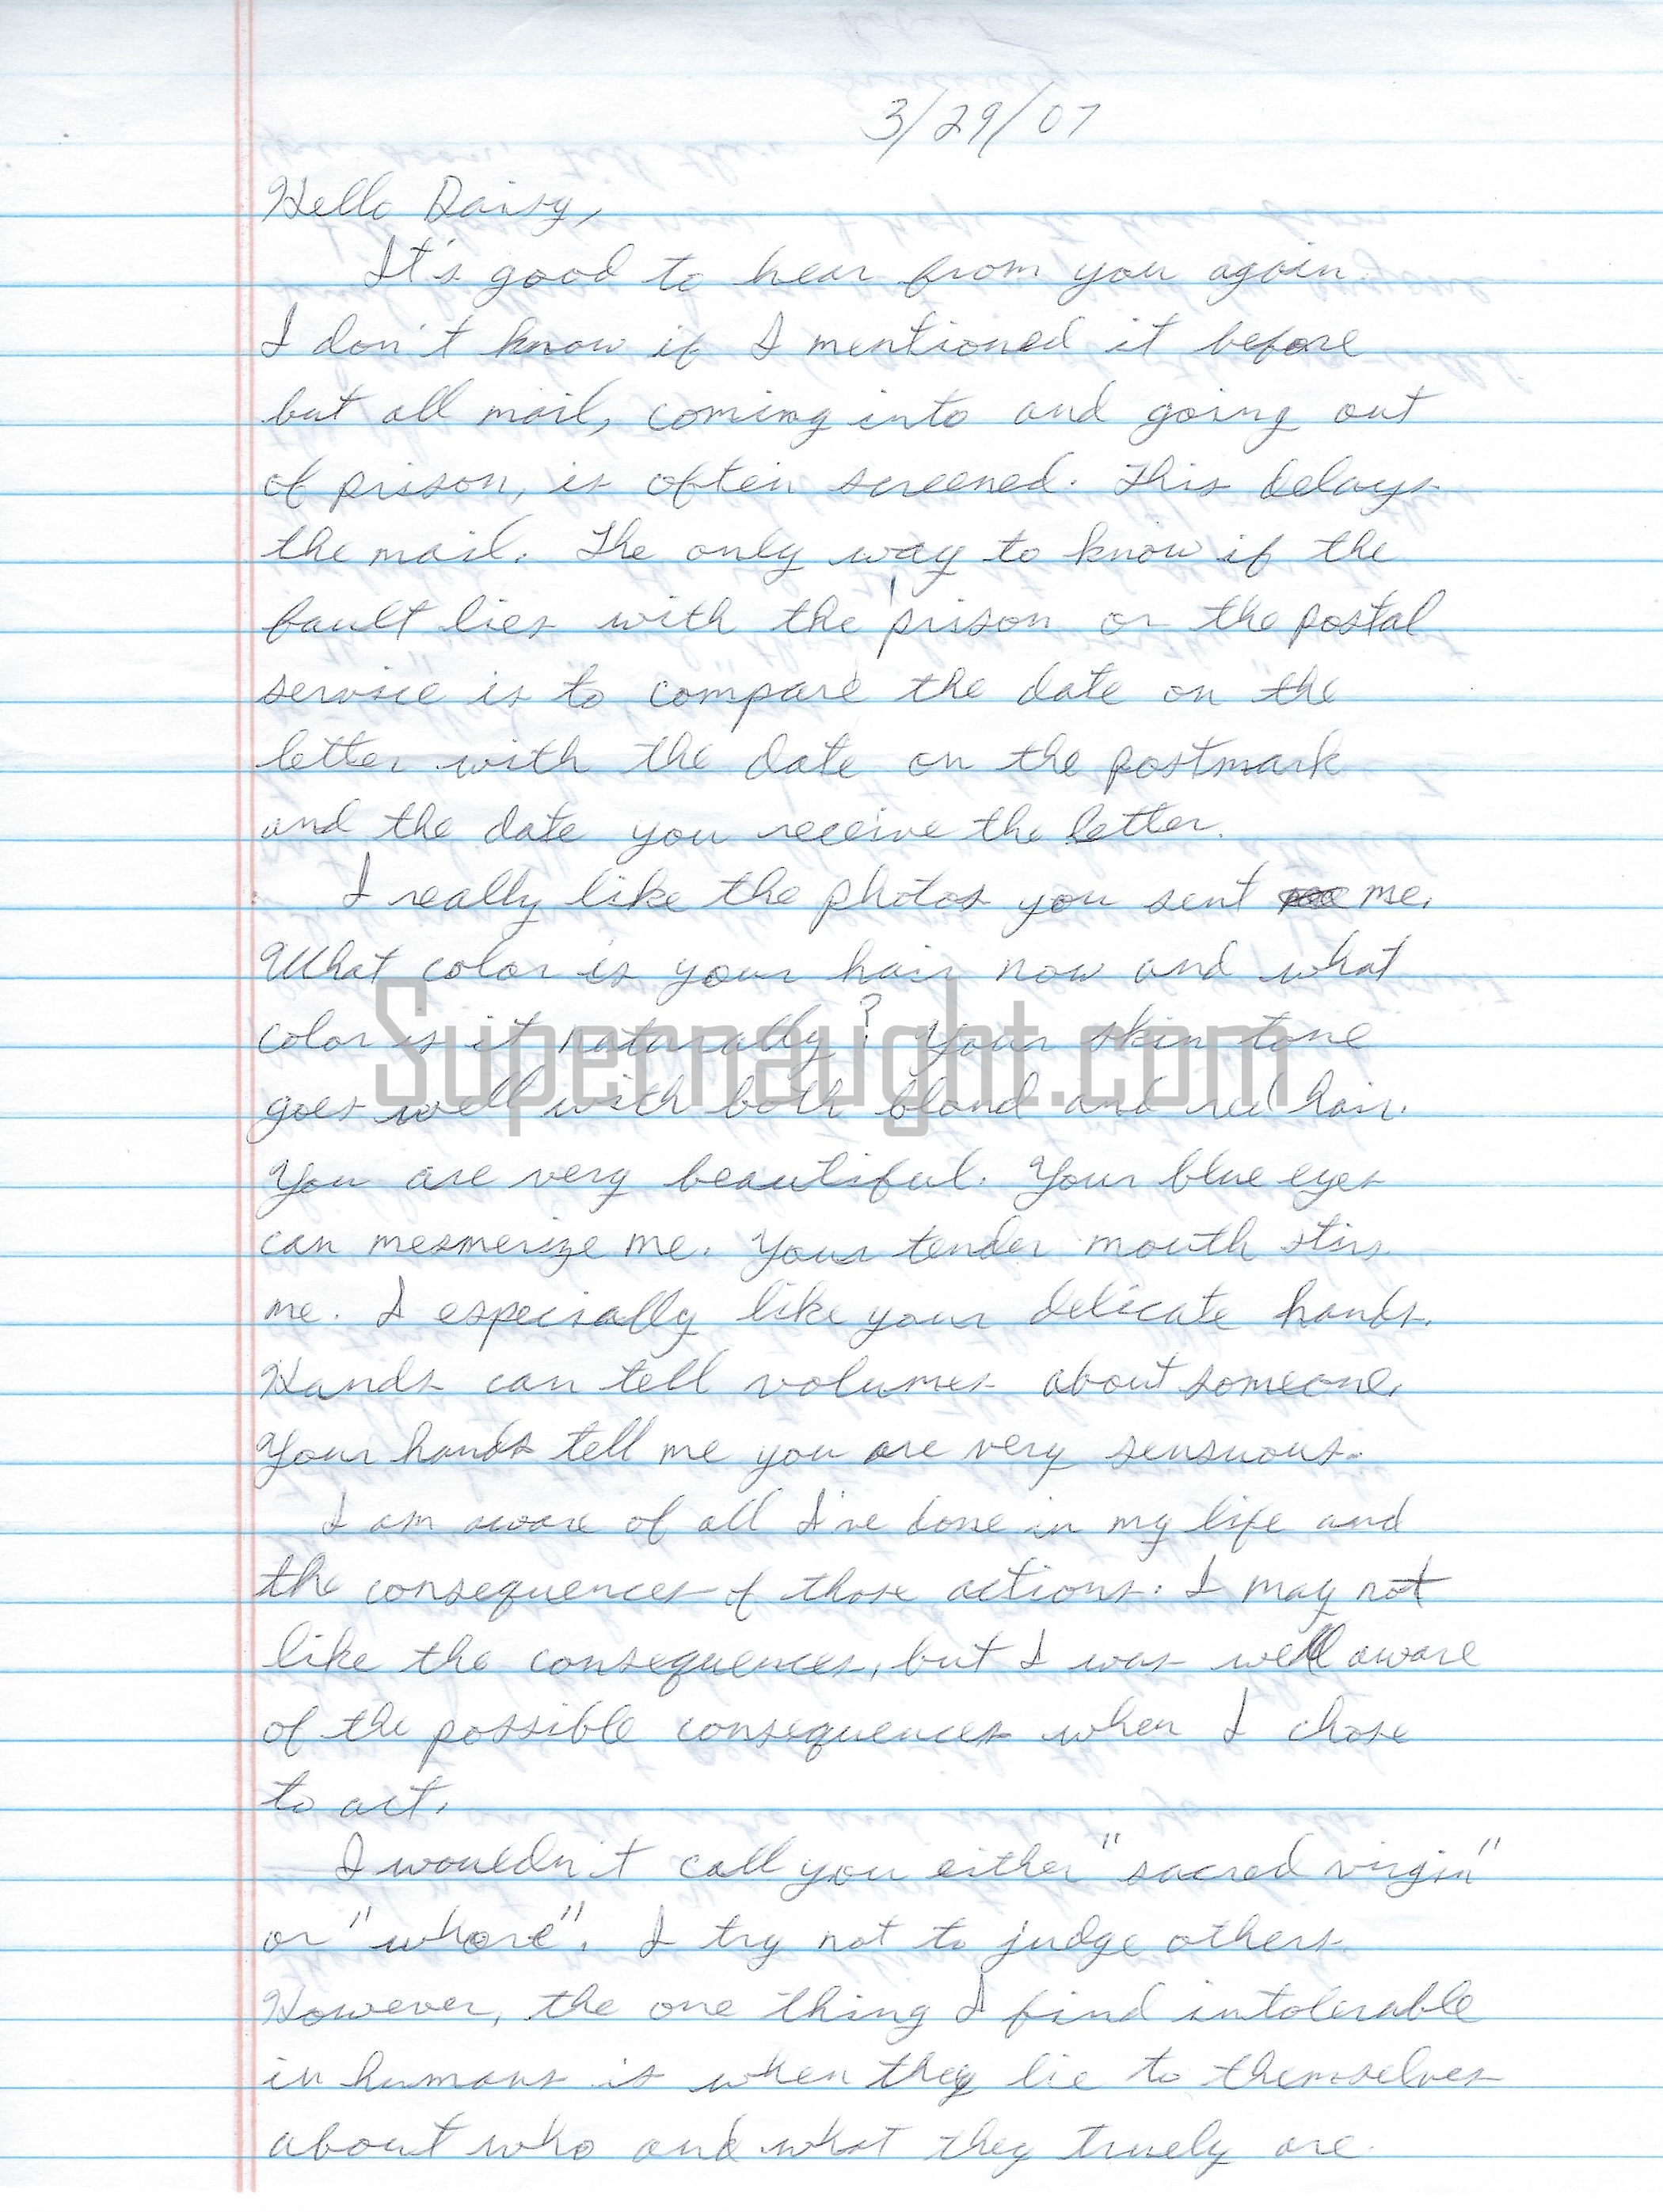 3/29/07
Hello Daisy,
It's good to hear from you again.
I don't know if I mentioned it before
but all mail, coming into and going out
of prison, is often screened. This delays
the mail. The only way to know if the
fault lies with the prison or the postal
service is to compare the date on the
letter with the date on the postmark
and the date you receive the letter.
I really like the photos you sent me.
What color is your hair now and what
color is it naturally? Your skin tone
Supernaught.com
goes well with both blond and red hair.
You are very beautiful. Your blue eyes
can mesmerize me. Your tender mouth stirs
me. I especially like your delicate hands.
Hands can tell volumes about someone.
Your hands tell me you are very sensuous.
I am aware of all I've done in my life and
the consequences of those actions. I may not
like the consequences, but I was well aware
of the possible consequences when I chose
to act.
I wouldn't call you either "sacred virgin"
or "whore". I try not to judge others.
However, the one thing I find intolerable
in humans is when they lie to themselves
about who and what they truely are.